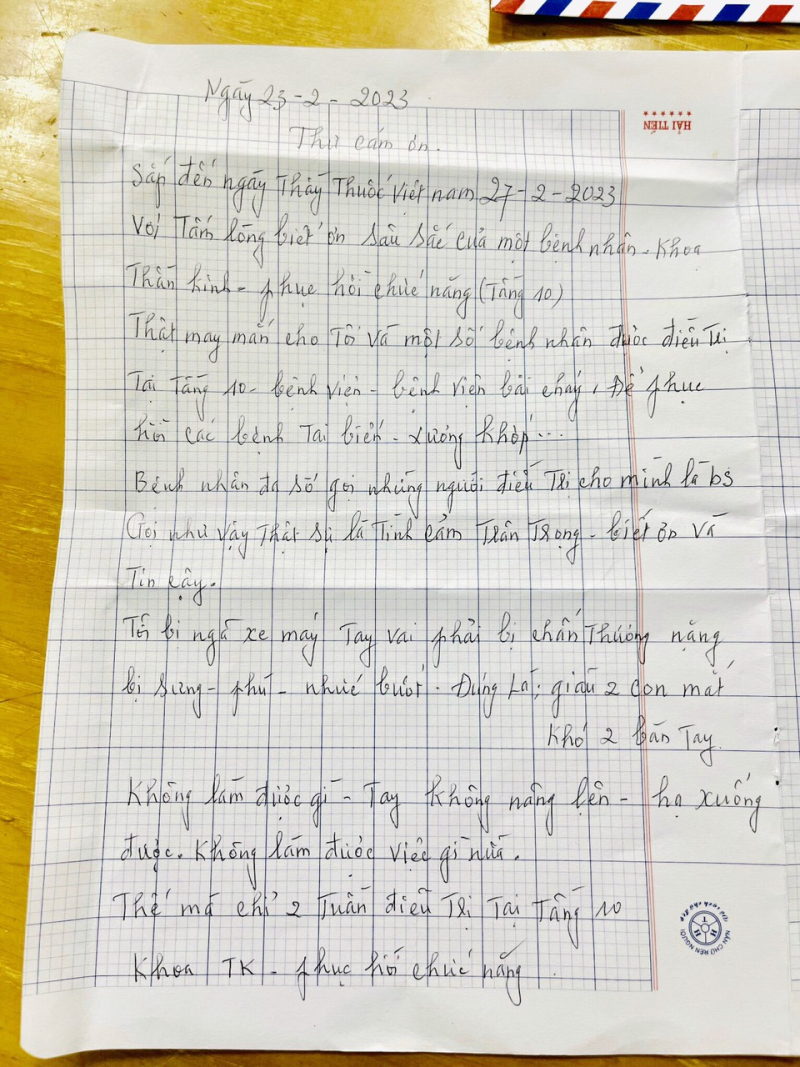 Ngày 23-2-2023
Thư cám ơn.
HẢI TIẾN
Sắp đến ngày Thầy Thuốc Việt nam 27-2-2023
Với Tấm lòng biết ơn sâu sắc của một bệnh nhân - Khoa
Thần kinh - phục hồi chức năng (Tầng 10)
Thật may mắn cho Tôi và một số bệnh nhân được điều trị
Tại Tầng 10 - bệnh viện - bệnh viện bãi cháy, Để phục
hồi các bệnh Tai biến - xương khớp...
Bệnh nhân đa số gọi những người điều trị cho mình là bs
Gọi như vậy Thật sự là Tình cảm Trân Trọng - biết ơn và
Tin cậy.
Tôi bị ngã xe máy Tay vai phải bị chấn Thương nặng
bị sưng - phù - nhức buốt. Đúng Là; giàu 2 con mắt
Khó 2 bàn Tay.
Không làm được gì - Tay không nâng lên - hạ xuống
được. Không làm được việc gì nữa.
Thế mà chỉ 2 Tuần điều Trị Tại Tầng 10
Khoa TK - phục hồi chức năng
NẮN CHỮ RÈN NGƯỜI